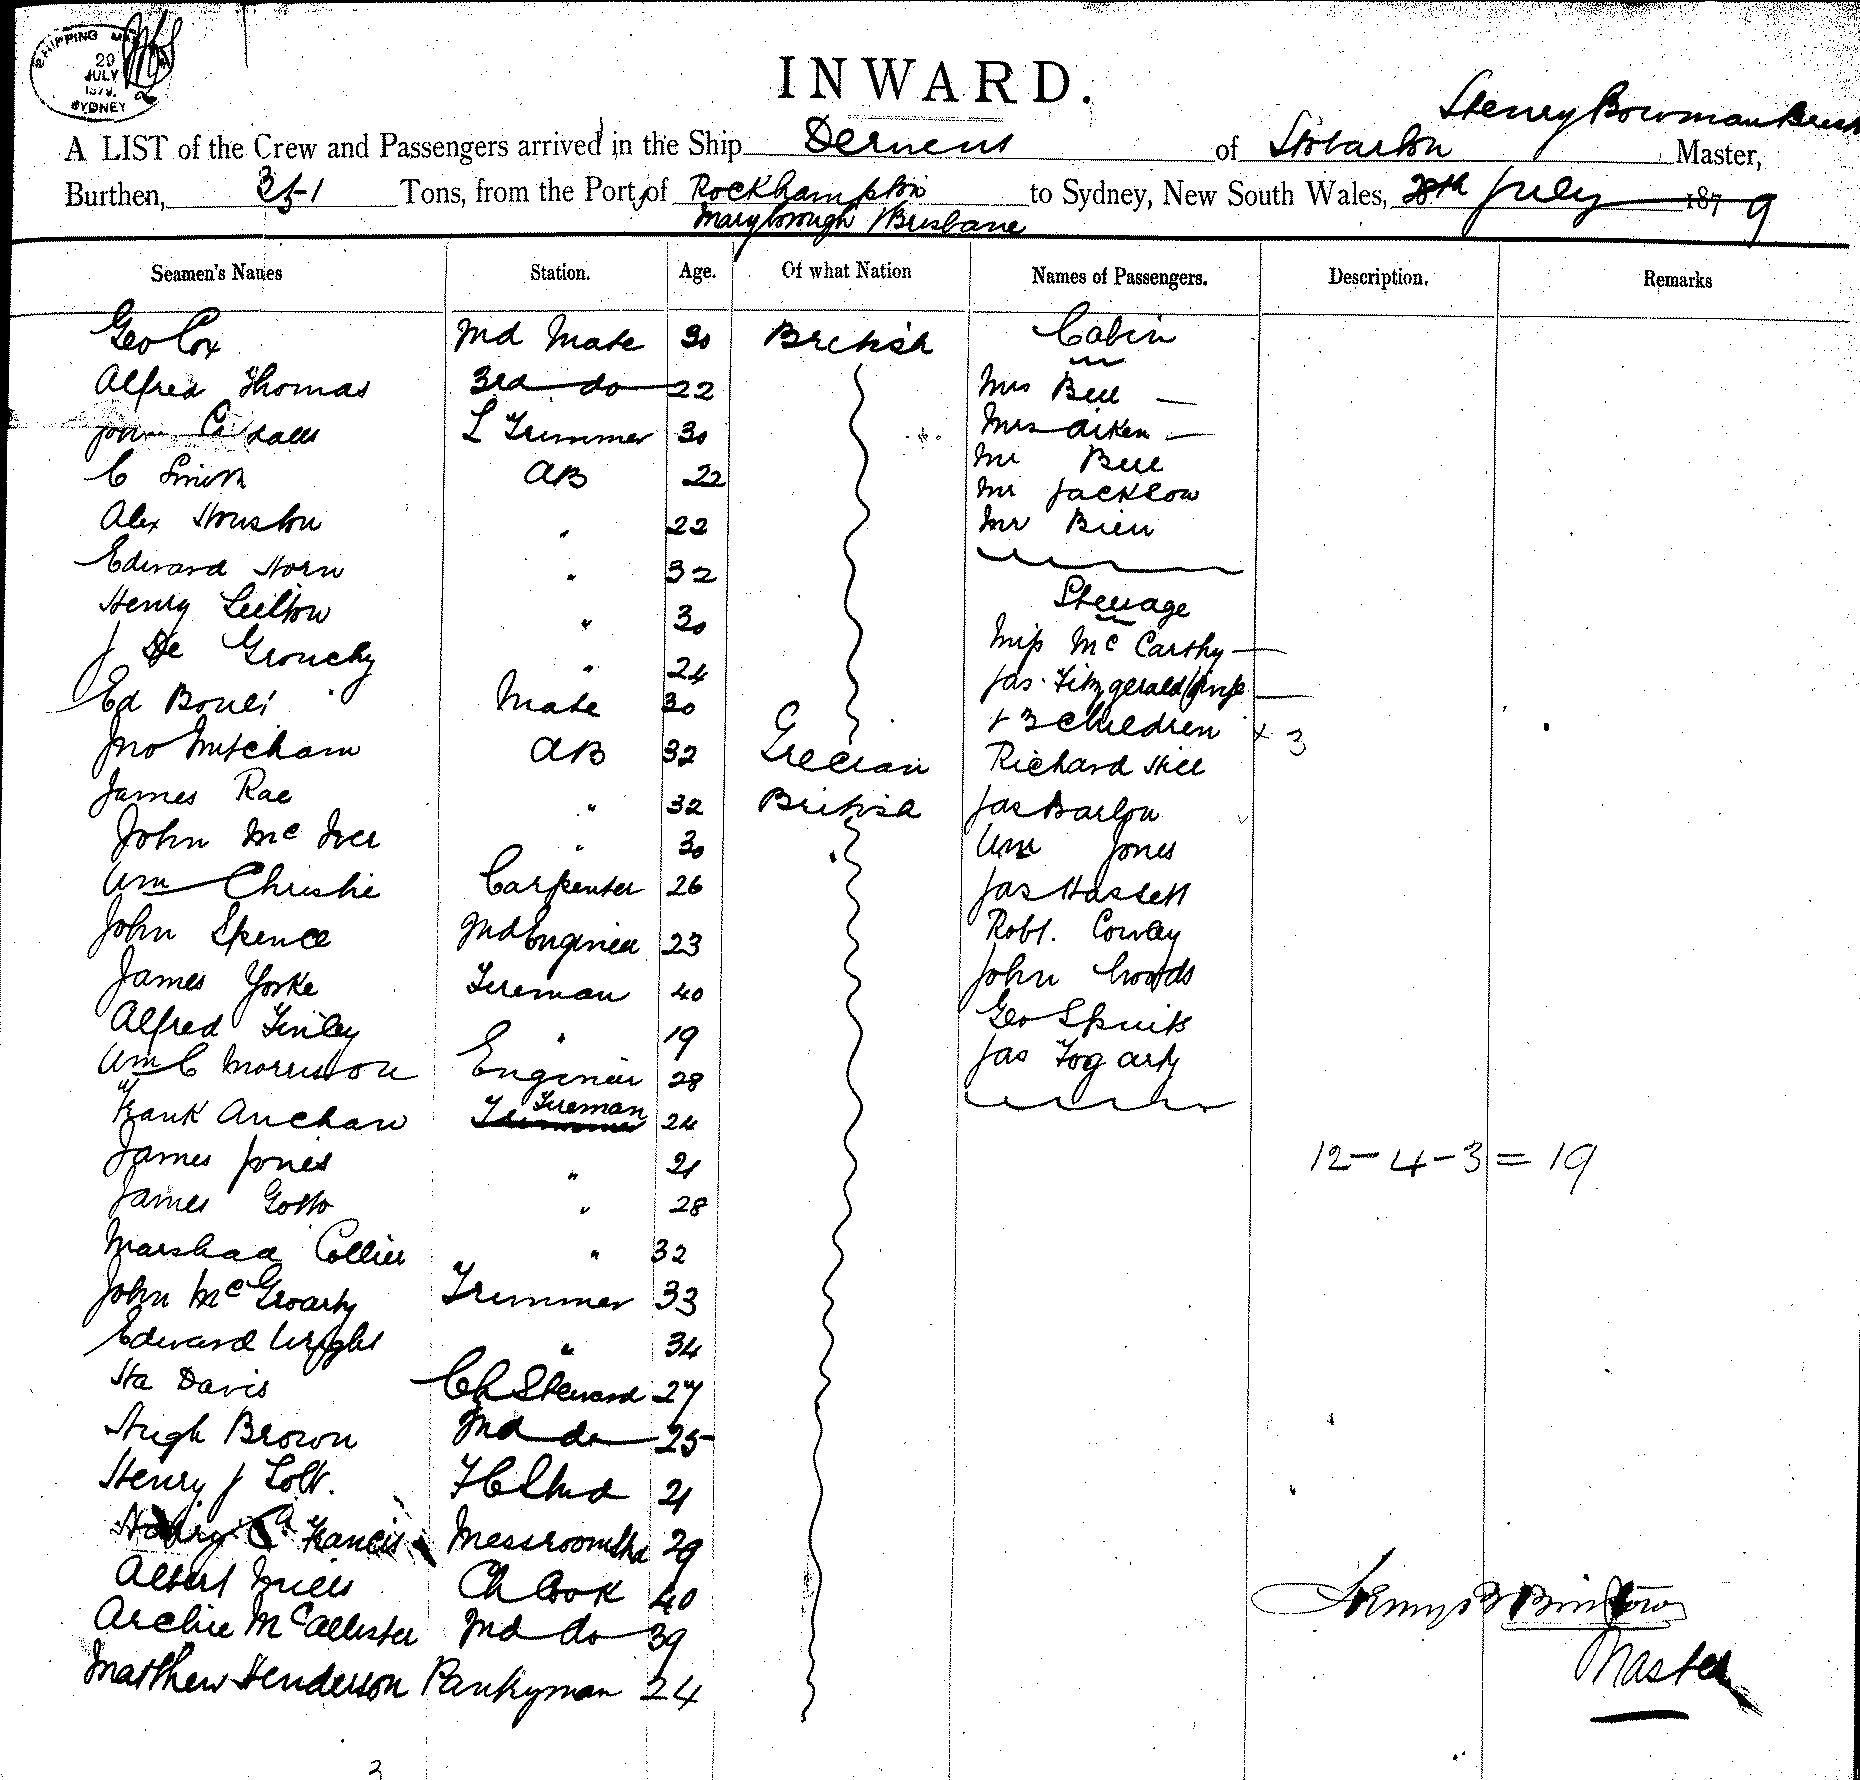 SHIPPING MA
29
JULY
1879.
SYDNEY
INWARD.
Henry Bowman
A LIST of the Crew and Passengers arrived in the Ship Derwent of Hobarton Master,
Burthen, 351 Tons, from the Port of Rockhampton to Sydney, New South Wales, 28th July 1879
Maryborough / Brisbane
Seamen's Names Station. Age. Of what Nation Names of Passengers. Description. Remarks
Geo Cox 2nd Mate 30 British Cabin
Alfred Thomas 3rd do 22 Mrs Bell
L Trimmer 30 Mrs Aiken
C Smith AB 22 Mr Bell
Mr Jacklow
Alex Houston " 22 Mr Bien
Edward Horn " 32
Henry " 30 Steerage
J De Grouchy " 24 Miss McCarthy
Ed Mate 30 Jas. Fitzgerald wife
+ 3 children + 3
Jno Mitcham AB 32 Grecian Richard Hill
James Rae " 32 British Jas Barlow
John McIver " 30 Wm Jones
Wm Christie Carpenter 26 Jas Hassett
John Spence 2nd Engineer 23 Robt. Conley
James Yorke Fireman 40 John Woods
Alfred Finley " 19 Geo
Wm C Morrison Engineer 28 Jas Fogarty
Frank Fireman 24
James Jones " 21 12-4-3 = 19
James Gotto " 28
Marshall Collier " 32
John McGroarty Trimmer 33
Edward Wright " 34
Davis Ch Steward 27
Hugh Brown 2nd do 25
Henry J 21
Francis Messroom 29
Albert Mills Ch Cook 40
Archie McCallister 2nd do 39
Matthew Henderson Pantryman 24
Master